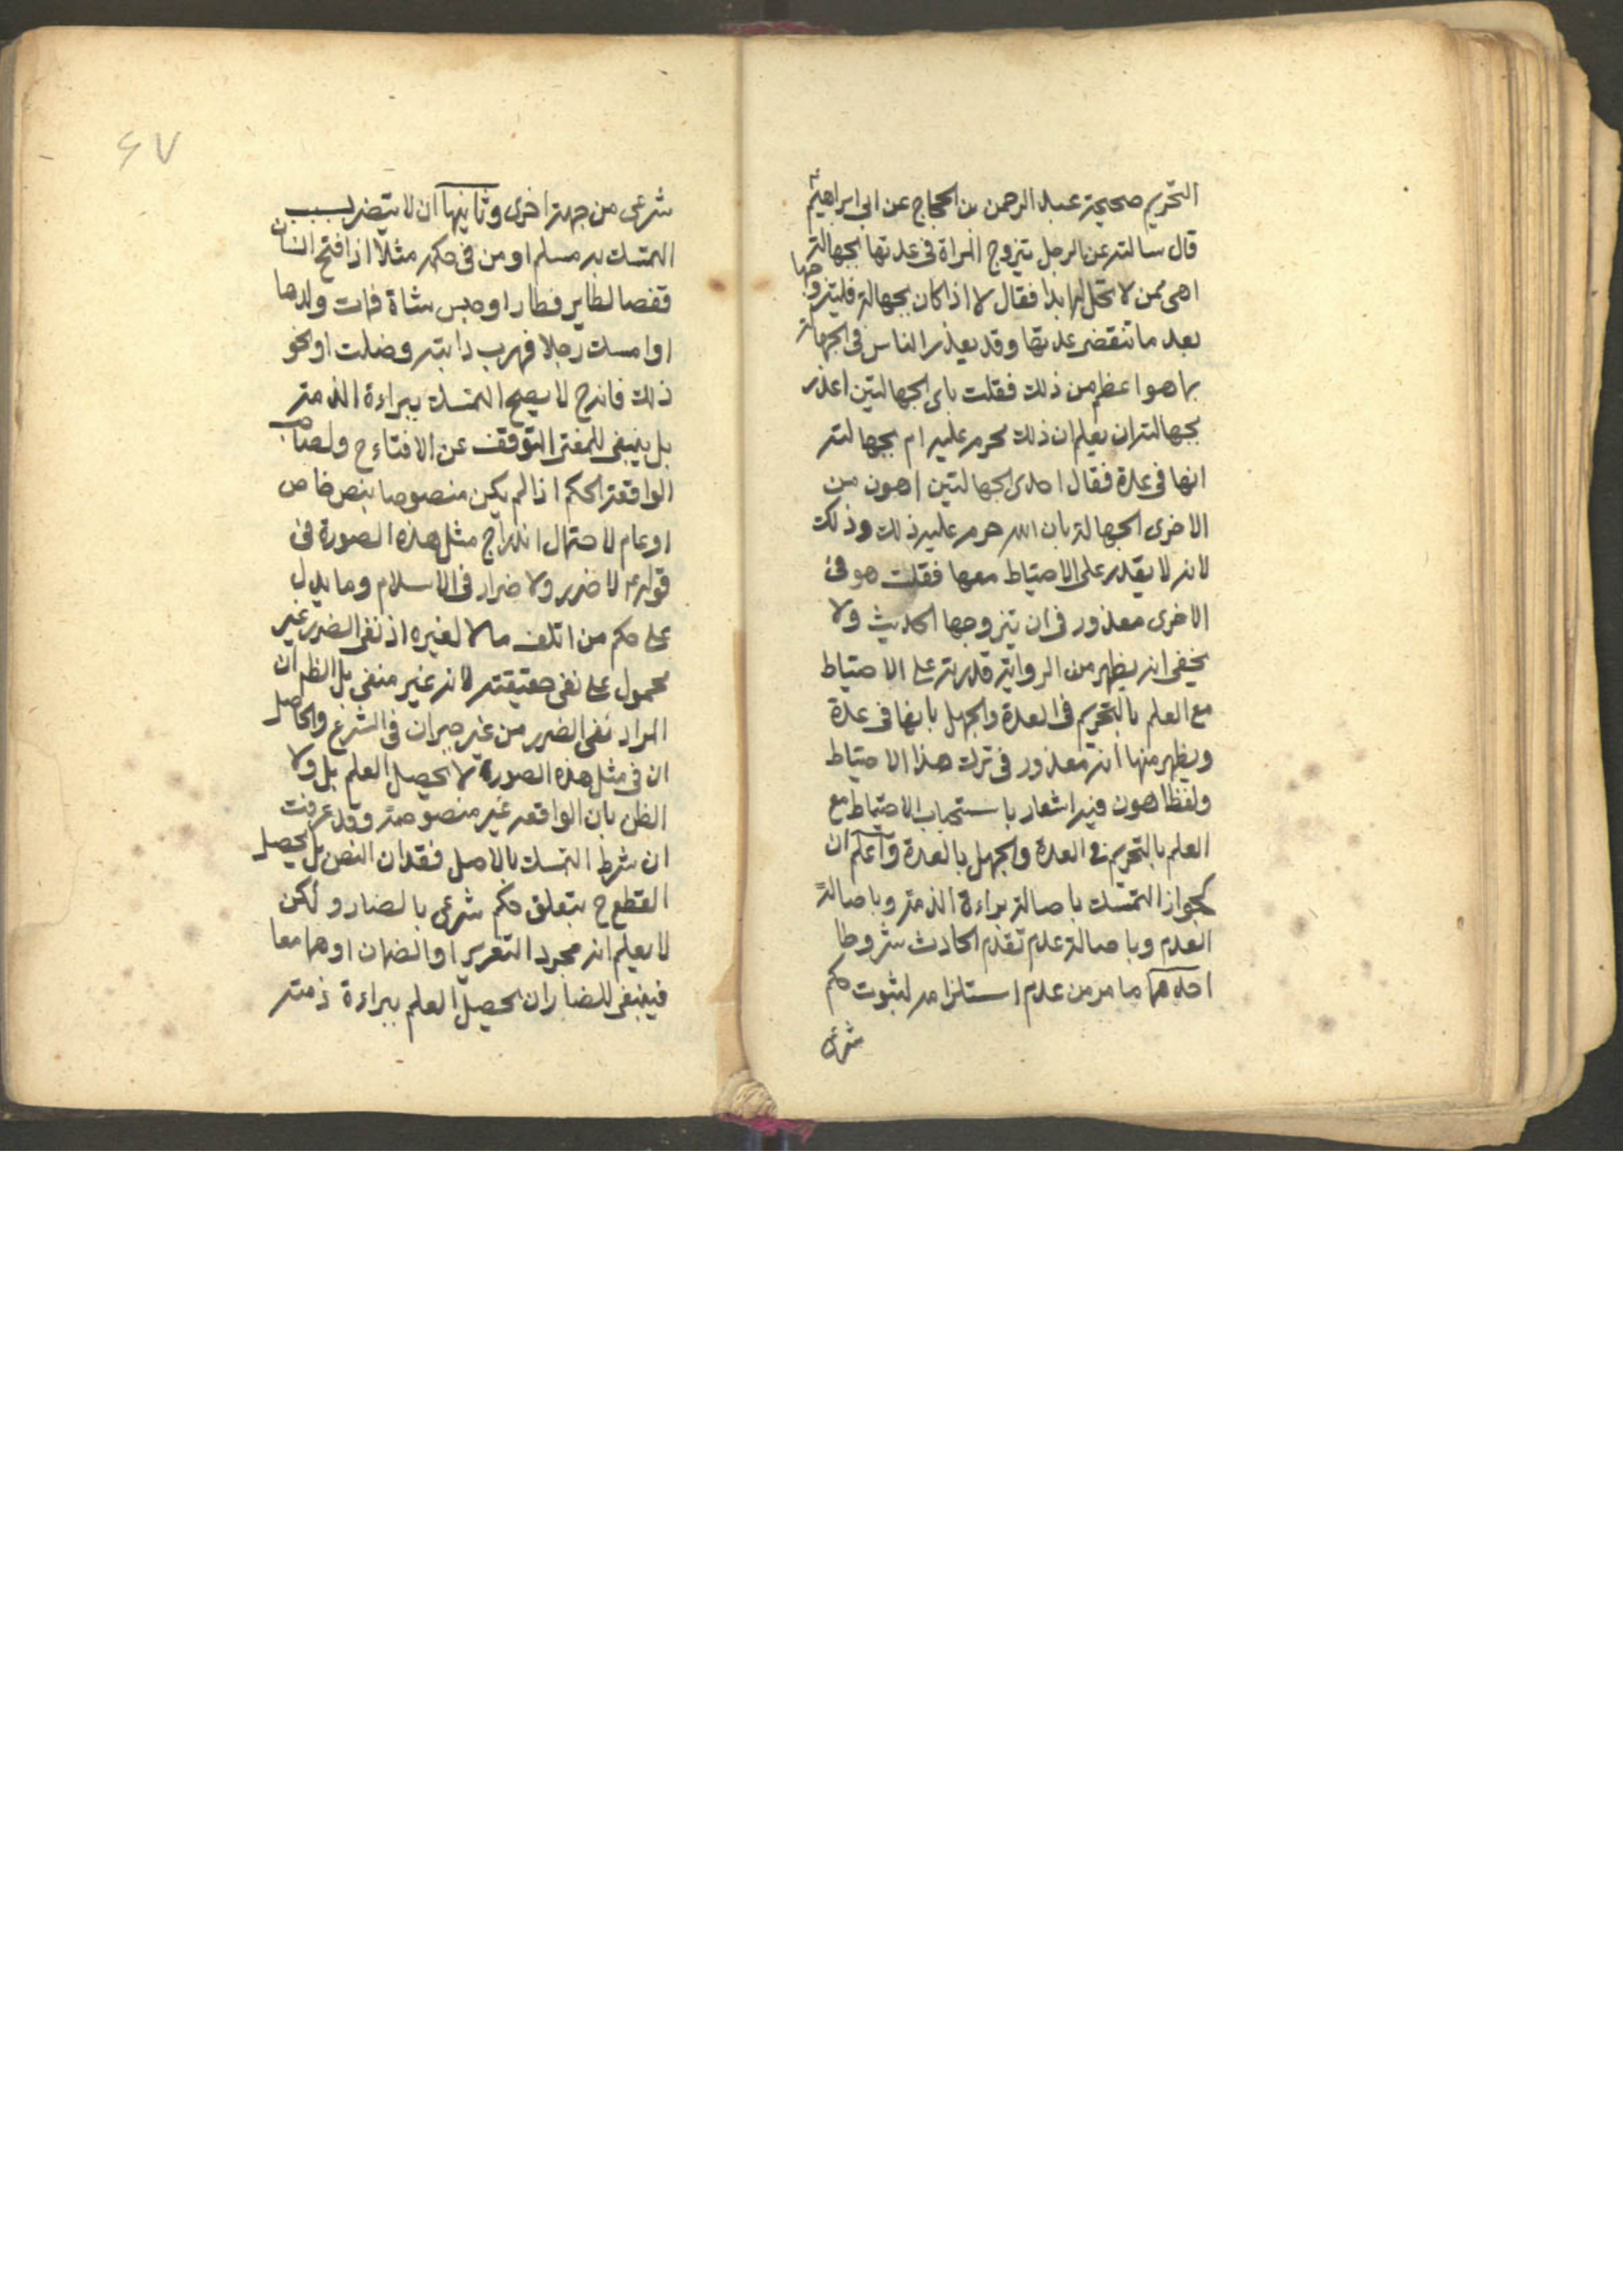 التحريم صحيحة عبد الرحمن بن الحجاج عن ابى ابراهيم ع
قال سالته عن الرجل يتزوج المراة فى عدتها بجهالة
اهى ممن لا تحل له ابدا فقال لا اذا كان بجهالة فليتزوجها
بعد ما تنقضى عدتها وقد يعذر الناس فى الجهالة
بما هو اعظم من ذلك فقلت باى الجهالتين اعذر
بجهالته ان يعلم ان ذلك محرم عليه ام بجهالته
انها فى عدة فقال احدى الجهالتين اهون من
الاخرى الجهالة بان الله حرم عليه ذلك وذلك
لانه لا يقدر على الاحتياط معها فقلت هو فى
الاخرى معذور فى ان يتزوجها الحديث ولا
يخفى انه يظهر من الرواية قدرته على الاحتياط
مع العلم بالتحريم فى العدة والجهل بانها فى عدة
ويظهر منها انه معذور فى ترك هذا الاحتياط
ولفظ اهون فيه اشعار باستحباب الاحتياط مع
العلم بالتحريم فى العدة والجهل بالعدة واعلم ان
لجواز التمسك باصالة براءة الذمة وباصالة
العدم وباصالة عدم تقدم الحادث شروطا
احدها ما مر من عدم استلزامه لثبوت حكم
شرعى
۶۷
شرعى من جهة اخرى وثانيها ان لا يتضرر بسبب
التمسك به مسلم او من فى حكمه مثلا اذا فتح انسان
قفصا لطاير فطار او حبس شاة فمات ولدها
او امسك رجلا فهرب دابته وضلت او نحو
ذلك فانه ح لا يصح التمسك ببراءة الذمة
بل ينبغى للمفتى التوقف عن الافتاء ح ولصاحب
الواقعة الحكم اذا لم يكن منصوصا بنص خاص
او عام لاحتمال اندراج مثل هذه الصورة فى
قوله ع لا ضرر ولا ضرار فى الاسلام وما يدل
على حكم من اتلف مالا لغيره اذ نفى الضرر غير
محمول على نفى حقيقته لانه غير منفى بل الظم ان
المراد نفى الضرر من غير جبران فى الشرع والحاصل
ان فى مثل هذه الصورة لا يحصل العلم بل ولا
الظن بان الواقعه غير منصوصة وقد عرفت
ان شرط التمسك بالاصل فقدان النص بل يحصل
القطع ح بتعلق حكم شرعى بالضار ولكن
لا يعلم انه مجرد التعزير او الضمان او هما معا
فينبغى للضار ان يحصل العلم ببراءة ذمته